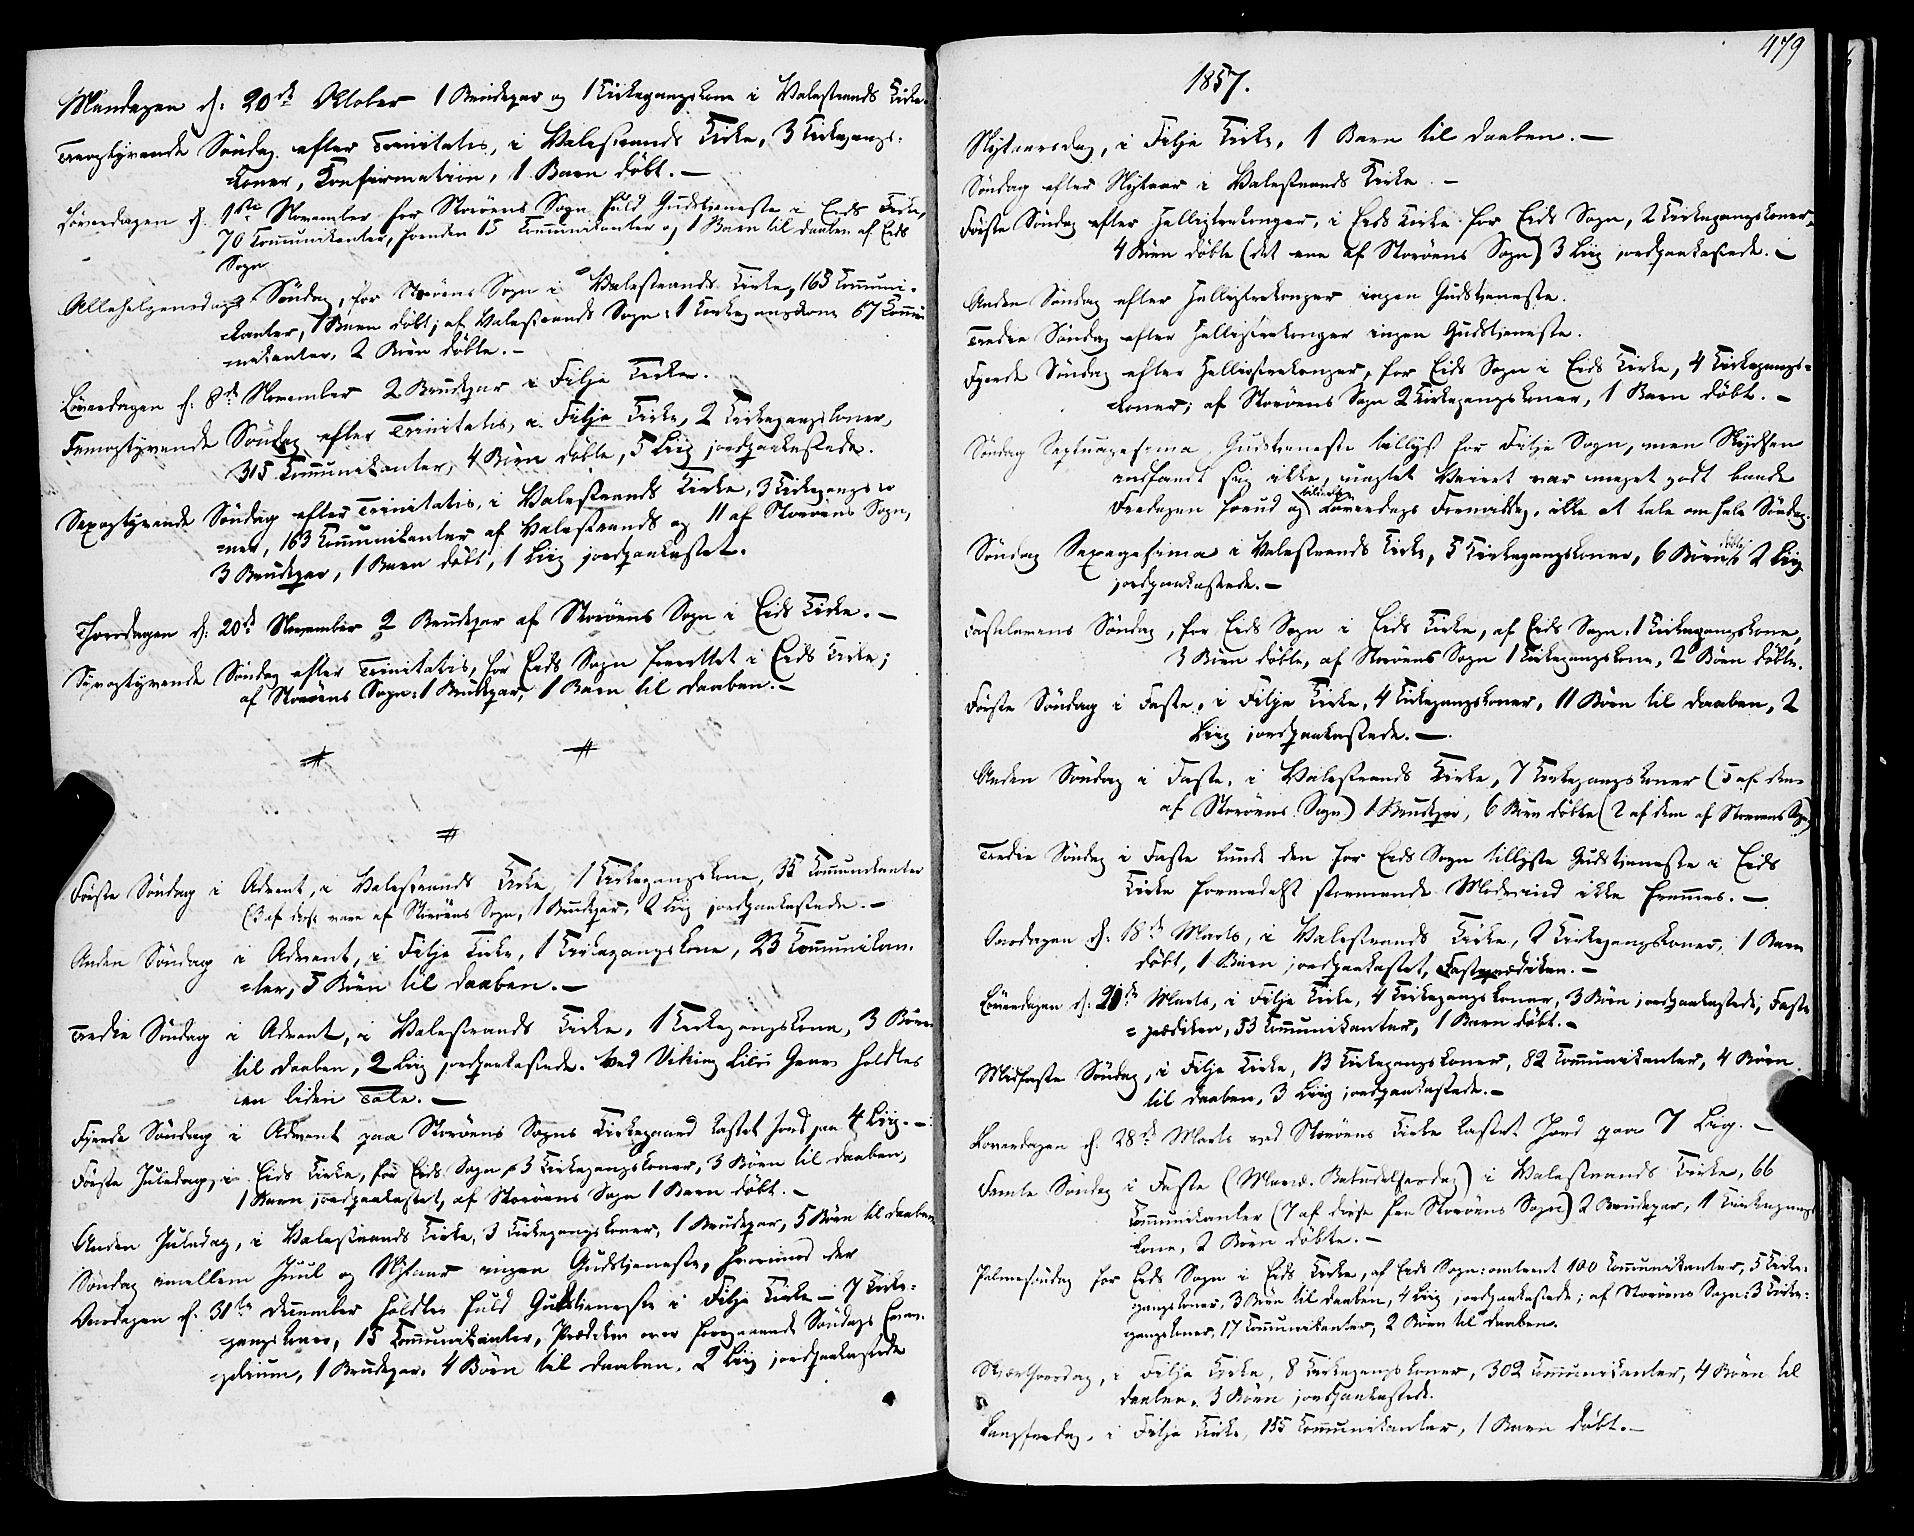 Mandagen d: 20de Oktober 1 Brudepar og 1 Kirkegangskone i Valestrands Kirke.
Treogtyvende Søndag efter Trinitatis, i Valestrands Kirke, 3 Kirkegangs-
=koner, Konfirmation, 1 Barn døbt. —
Løverdagen d. 1ste November for Storøens Sogn fuld Gudstjeneste i Eids Kirke,
70 Communikanter, foruden 15 Communikanter og 1 Barn til daaben af Eids
Sogn
Allehelgensdags Søndag, for Storøens Sogn i Valestrands Kirke, 163 Communi-
=kanter, 1 Barn døbt; af Valestrands Sogn: 1 Kirkegangskone 67 Commu
=nikanter, 2 Børn døbte. —
Løverdagen d: 8de November 2 Brudepar i Fitje Kirke.
Femogtyvende Søndag efter Trinitatis, i Fitje Kirke, 2 Kirkegangskoner,
315 Communikanter, 4 Børn døbte, 5 Liig jordpaakastede.
Sexogtyvende Søndag efter Trinitatis, i Valestrands Kirke, 3 Kirkegangsko
=ner, 163 Communikanter af Valestrands og 11 af Storøens Sogn,
3 Brudepar, 1 Barn døbt, 1 Liig jordpaakastet.
Thorsdagen d: 20de November 2 Brudepar af Storøens Sogn i Eids Kirke. —
Syvogtyvende Søndag efter Trinitatis, for Eids Sogn forrettet i Eids Kirke;
af Storøens Sogn: 1 Brudepar, 1 Barn til daaben. —
# #
#
Første Søndag i Advent, i Valestrands Kirke, 1 Kirkegangskone, 35 Communikanter
(3 af disse vare af Storøens Sogn, 1 Brudepar, 2 Liig jordpaakastede. —
Anden Søndag i Advent, i Fitje Kirke, 1 Kirkegangskone, 23 Communikan-
=ter, 5 Børn til daaben. —
Tredie Søndag i Advent, i Valestrands Kirke, 1 Kirkegangskone, 3 Børn
til daaben, 2 Liig jordpaakastede. Ved Viking Grav holdtes
en liden Tale. —
Fjerde Søndag i Advent paa Storøens Sogns Kirkegaard kastet Jord paa 4 Liig. —
Første Juledag, i Eids Kirke, for Eids Sogn, 3 Kirkegangskoner, 3 Børn til daaben,
1 Barn jordpaakastet, af Storøens Sogn 1 Barn døbt. —
Anden Juledag, i Valestrands Kirke, 3 Kirkegangskoner, 1 Brudepar, 5 Børn til daaben
Søndag imellem Juul og Nytaar ingen Gudstjeneste, hvorimod der
Onsdagen d: 31te December holdtes fuld Gudstjeneste i Fitje Kirke — 7 Kirke-
=gangskoner, 15 Communikanter, Prædiken over foregaaende Søndags Evan-
=gelium, 1 Brudepar, 4 Børn til daaben, 2 Liig jordpaakastede
479
1857.
Nytaarsdag, i Fitje Kirke, 1 Barn til daaben. —
Søndag efter Nytaar i Valestrands Kirke. —
Første Søndag efter Helligtrekonger, i Eids Kirke for Eids Sogn, 2 Kirkegangskoner,
4 Børn døbte (det ene af Storøens Sogn) 3 Liig jordpaakastede. —
Anden Søndag efter Helligtrekonger ingen Gudstjeneste.
Tredie Søndag efter Helligtrekonger ingen Gudstjeneste.
Fjerde Søndag efter Helligtrekonger, for Eids Sogn i Eids Kirke, 4 Kirkegangs=
=koner; af Storøens Sogn 2 Kirkegangskoner, 1 Barn døbt. —
Søndag Septuagesima Gudstjeneste tillyst for Fitje Sogn, men Skydsen
indfandt sig ikke, uagtet Veiret var meget godt baade
Fredagen forud og Løverdags Formiddag, ikke at tale om hele Søndag.
Søndag Sexagesima i Valestrands Kirke, 5 Kirkegangskoner, 6 Børn døbte, 2 Liig
jordpaakastede. —
Fastelavens Søndag, for Eids Sogn i Eids Kirke, af Eids Sogn: 1 Kirkegangskone,
3 Børn døbte, af Storøens Sogn 1 Kirkegangskone, 2 Børn døbte.
Første Søndag i Faste, i Fitje Kirke, 4 Kirkegangskoner, 11 Børn til daaben, 2
Liig jordpaakastede. —
Anden Søndag i Faste, i Valestrands Kirke, 7 Kirkegangskoner (5 af dem
af Storøens Sogn) 1 Brudepar, 6 Børn døbte (2 af dem af Storøens Sogn)
Tredie Søndag i Faste kunde den for Eids Sogn tillyste Gudstjeneste i Eids
Kirke formedelst stormende Modvind ikke fremmes. —
Onsdagen d: 18de Marts, i Valestrands Kirke, 2 Kirkegangskoner, 1 Barn
døbt, 1 Barn jordpaakastet, Fasteprædiken. —
Løverdagen d: 21de Marts, i Fitje Kirke, 4 Kirkegangskoner, 3 Børn jordpaakastede, Faste
=prædiken, 53 Communikanter, 1 Barn døbt. —
Midfaste Søndag, i Fitje Kirke, 13 Kirkegangskoner, 82 Communikanter, 4 Børn
til daaben, 3 Liig jordpaakastede. —
Løverdagen d. 28de Marts ved Storøens Kirke kastet Jord paa 7 Liig. —
Femte Søndag i Faste (Mariæ Bebudelsesdag) i Valestrands Kirke, 66
Communikanter (7 af disse fra Storøens Sogn) 2 Brudepar, 1 Kirkegangs
kone, 2 Børn døbte. —
Palmesøndag for Eids Sogn i Eids Kirke, af Eids Sogn: omtrent 100 Communikanter, 5 Kirke-
gangskoner, 3 Børn til daaben, 4 Liig jordpaakastede; af Storøens Sogn: 3 Kirke-
gangskoner, 17 Communikanter, 2 Børn til daaben.
Skjærthorsdag, i Fitje Kirke, 8 Kirkegangskoner, 302 Communikanter, 4 Børn til
daaben, 3 Børn jordpaakastede.
Langfredag, i Fitje Kirke, 155 Communikanter, 1 Barn døbt. —